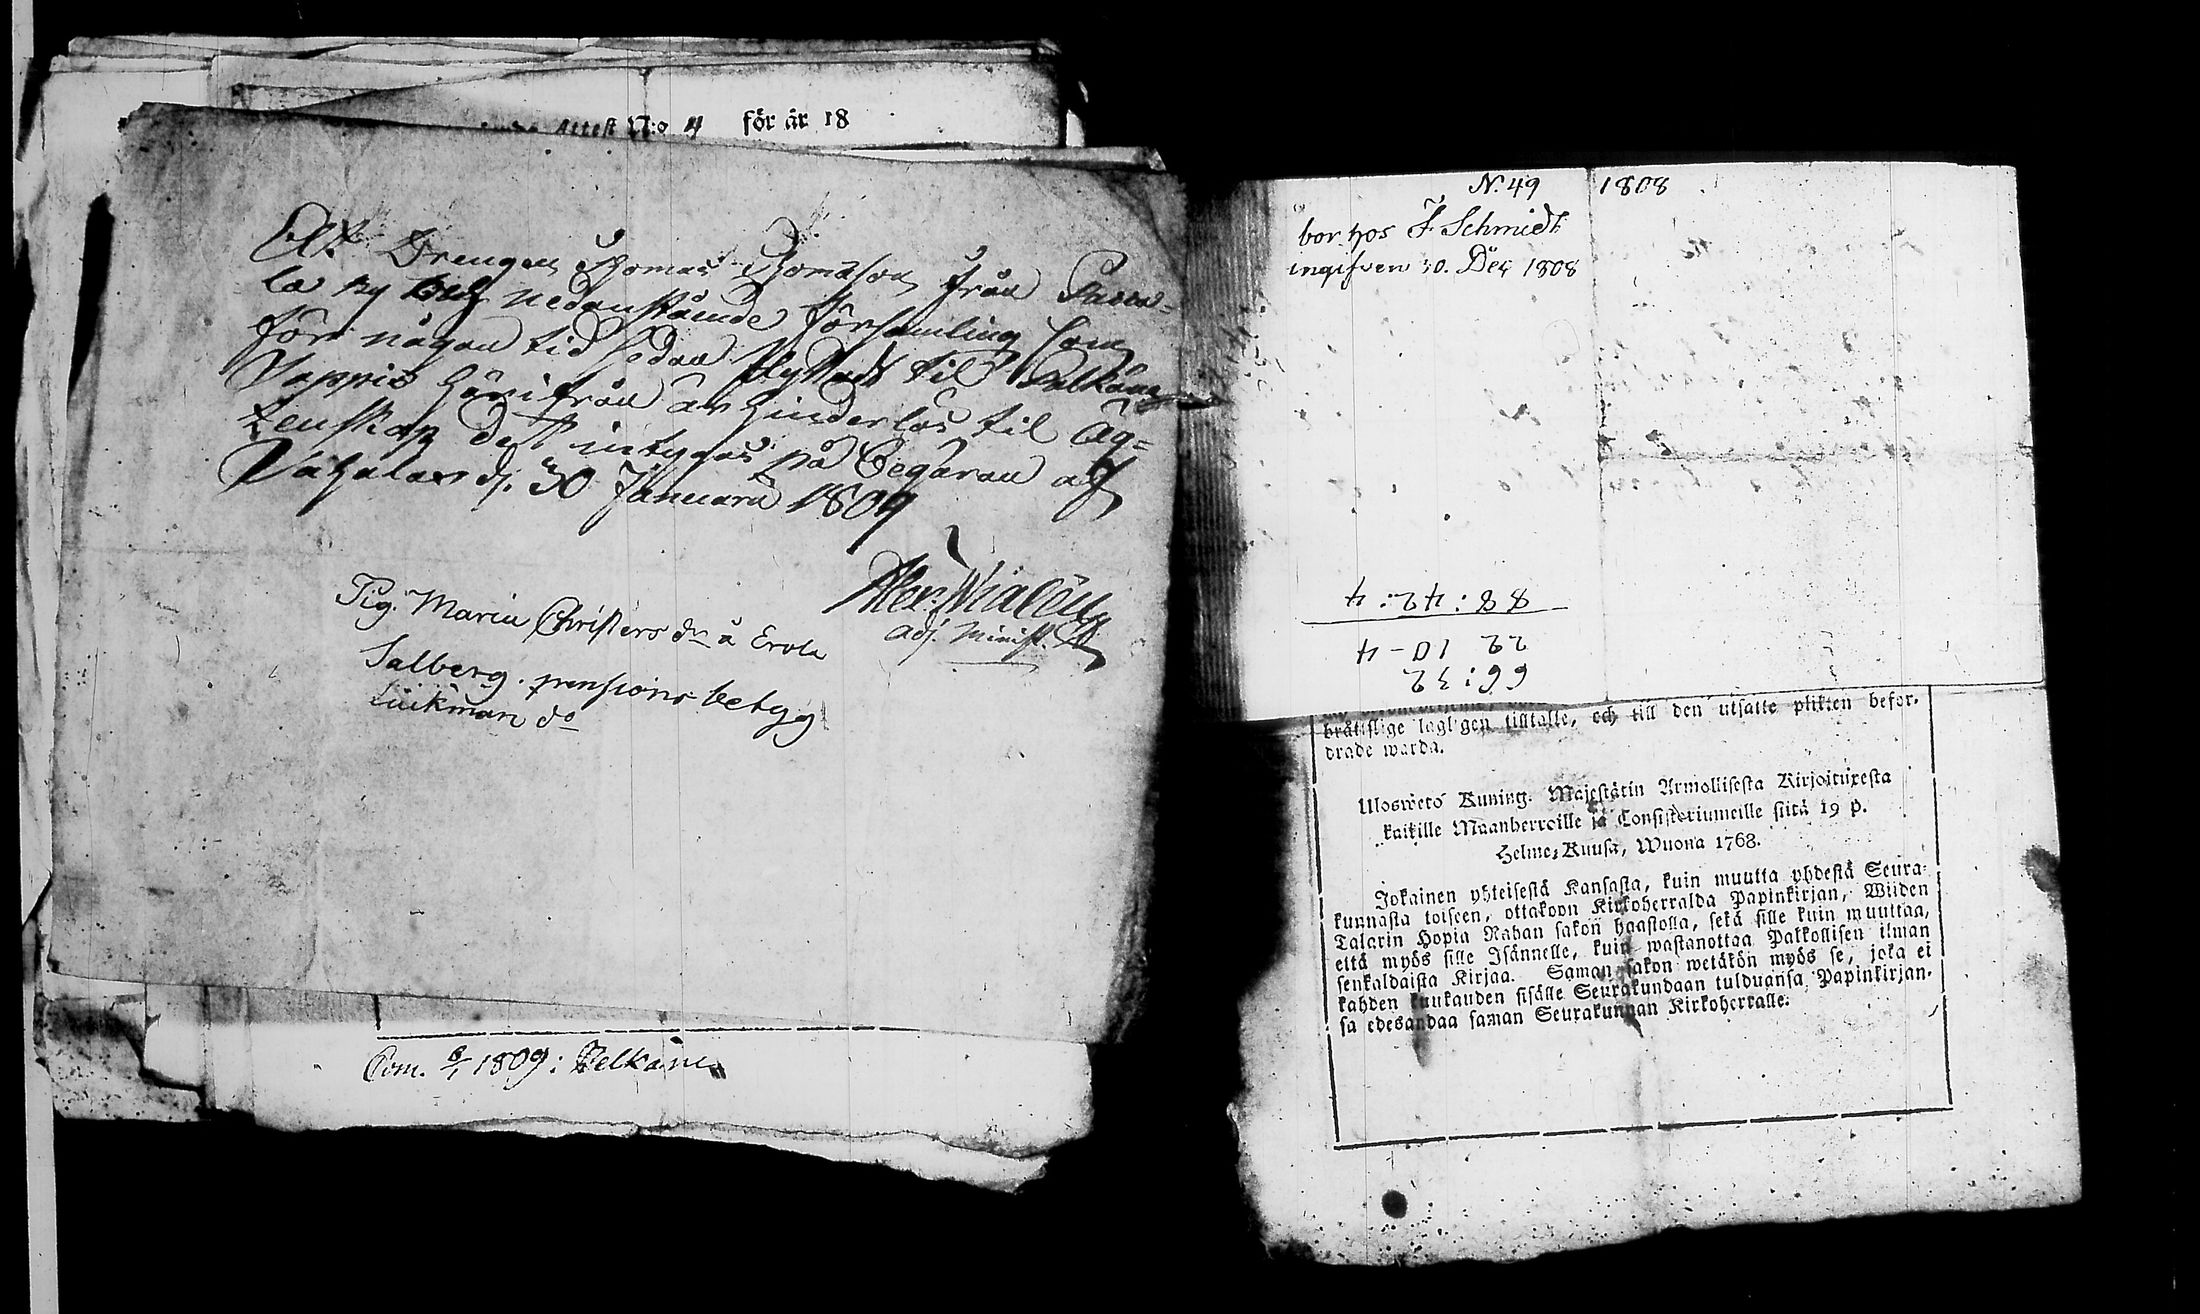 Attest N:o 4 för år 18
At Drengen Thomas Thomasson från Passa-
la by och nedanstående Församling som
för någon tid sedan flyttadt til Pelkäne
Soppis härifrån är hinderlös til Äg-
tenskap det intygas på begäran af
Vähalax d. 30 Januarii 1809
Adj. Minist.
Pig. Maria Christers dr å Erola
Salberg. pensions betyg
Lückman do
Com. 6/1 1809: Pelkäne
N. 49 1808
bor hos F Schmidt
ingifven 30. Dec 1808
66:32
22 10-4
88:42:4
brättslige lagligen tilltalte, och till den utsatte plikten befor-
drade warda.
Uloswetö Kuning. Majestätin Armollisesta Kirjoituxesta
kaikille Maanherroille ja Consistoriumeille siitä 19 p.
Helme-Kuusa, Wuona 1768.
Jokainen yhteisestä Kansasta, kuin muutta yhdestä Seura-
kunnasta toiseen, ottakoon Kirkoherralda Papinkirjan, Wiiden
Talarin Hopia Rahan sakon haastolla, sekä sille kuin muuttaa,
että myös sille Isännelle, kuin wastanottaa Palkollisen ilman
senkaldaista Kirjaa. Saman sakon wetäkön myös se, joka ei
kahden kuukauden sisälle Seurakundaan tulduansa, Papinkirjan-
sa edesandaa saman Seurakunnan Kirkoherralle.